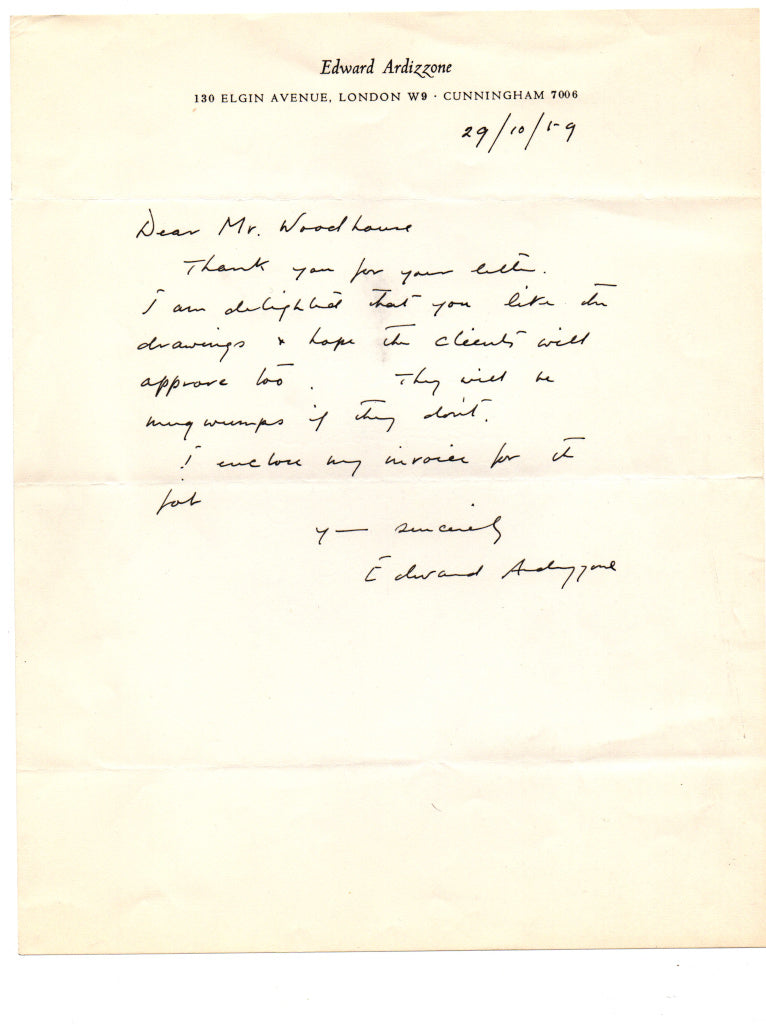 Edward Ardizzone
130 ELGIN AVENUE, LONDON W9 · CUNNINGHAM 7006
29/10/59
Dear Mr. Woodhouse
Thank you for your letter.
I am delighted that you like the
drawings & hope the clients will
approve too. They will be
mugwumps if they don't.
I enclose my invoice for the
job
Yrs sincerely
Edward Ardizzone